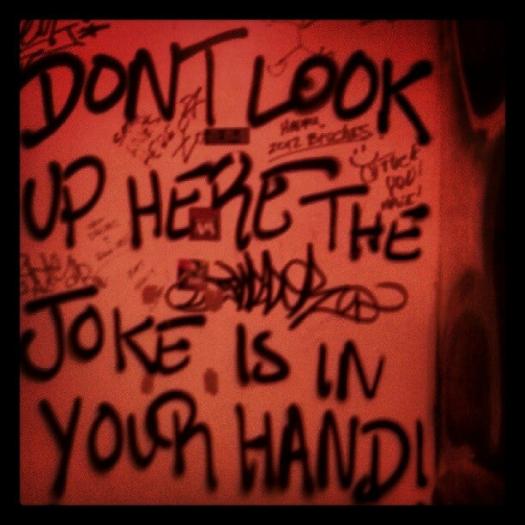 DONT LOOK
2012 BITCHES
UP HERE THE
FUCK
YOU!
JOKE IS IN
YOUR HAND!